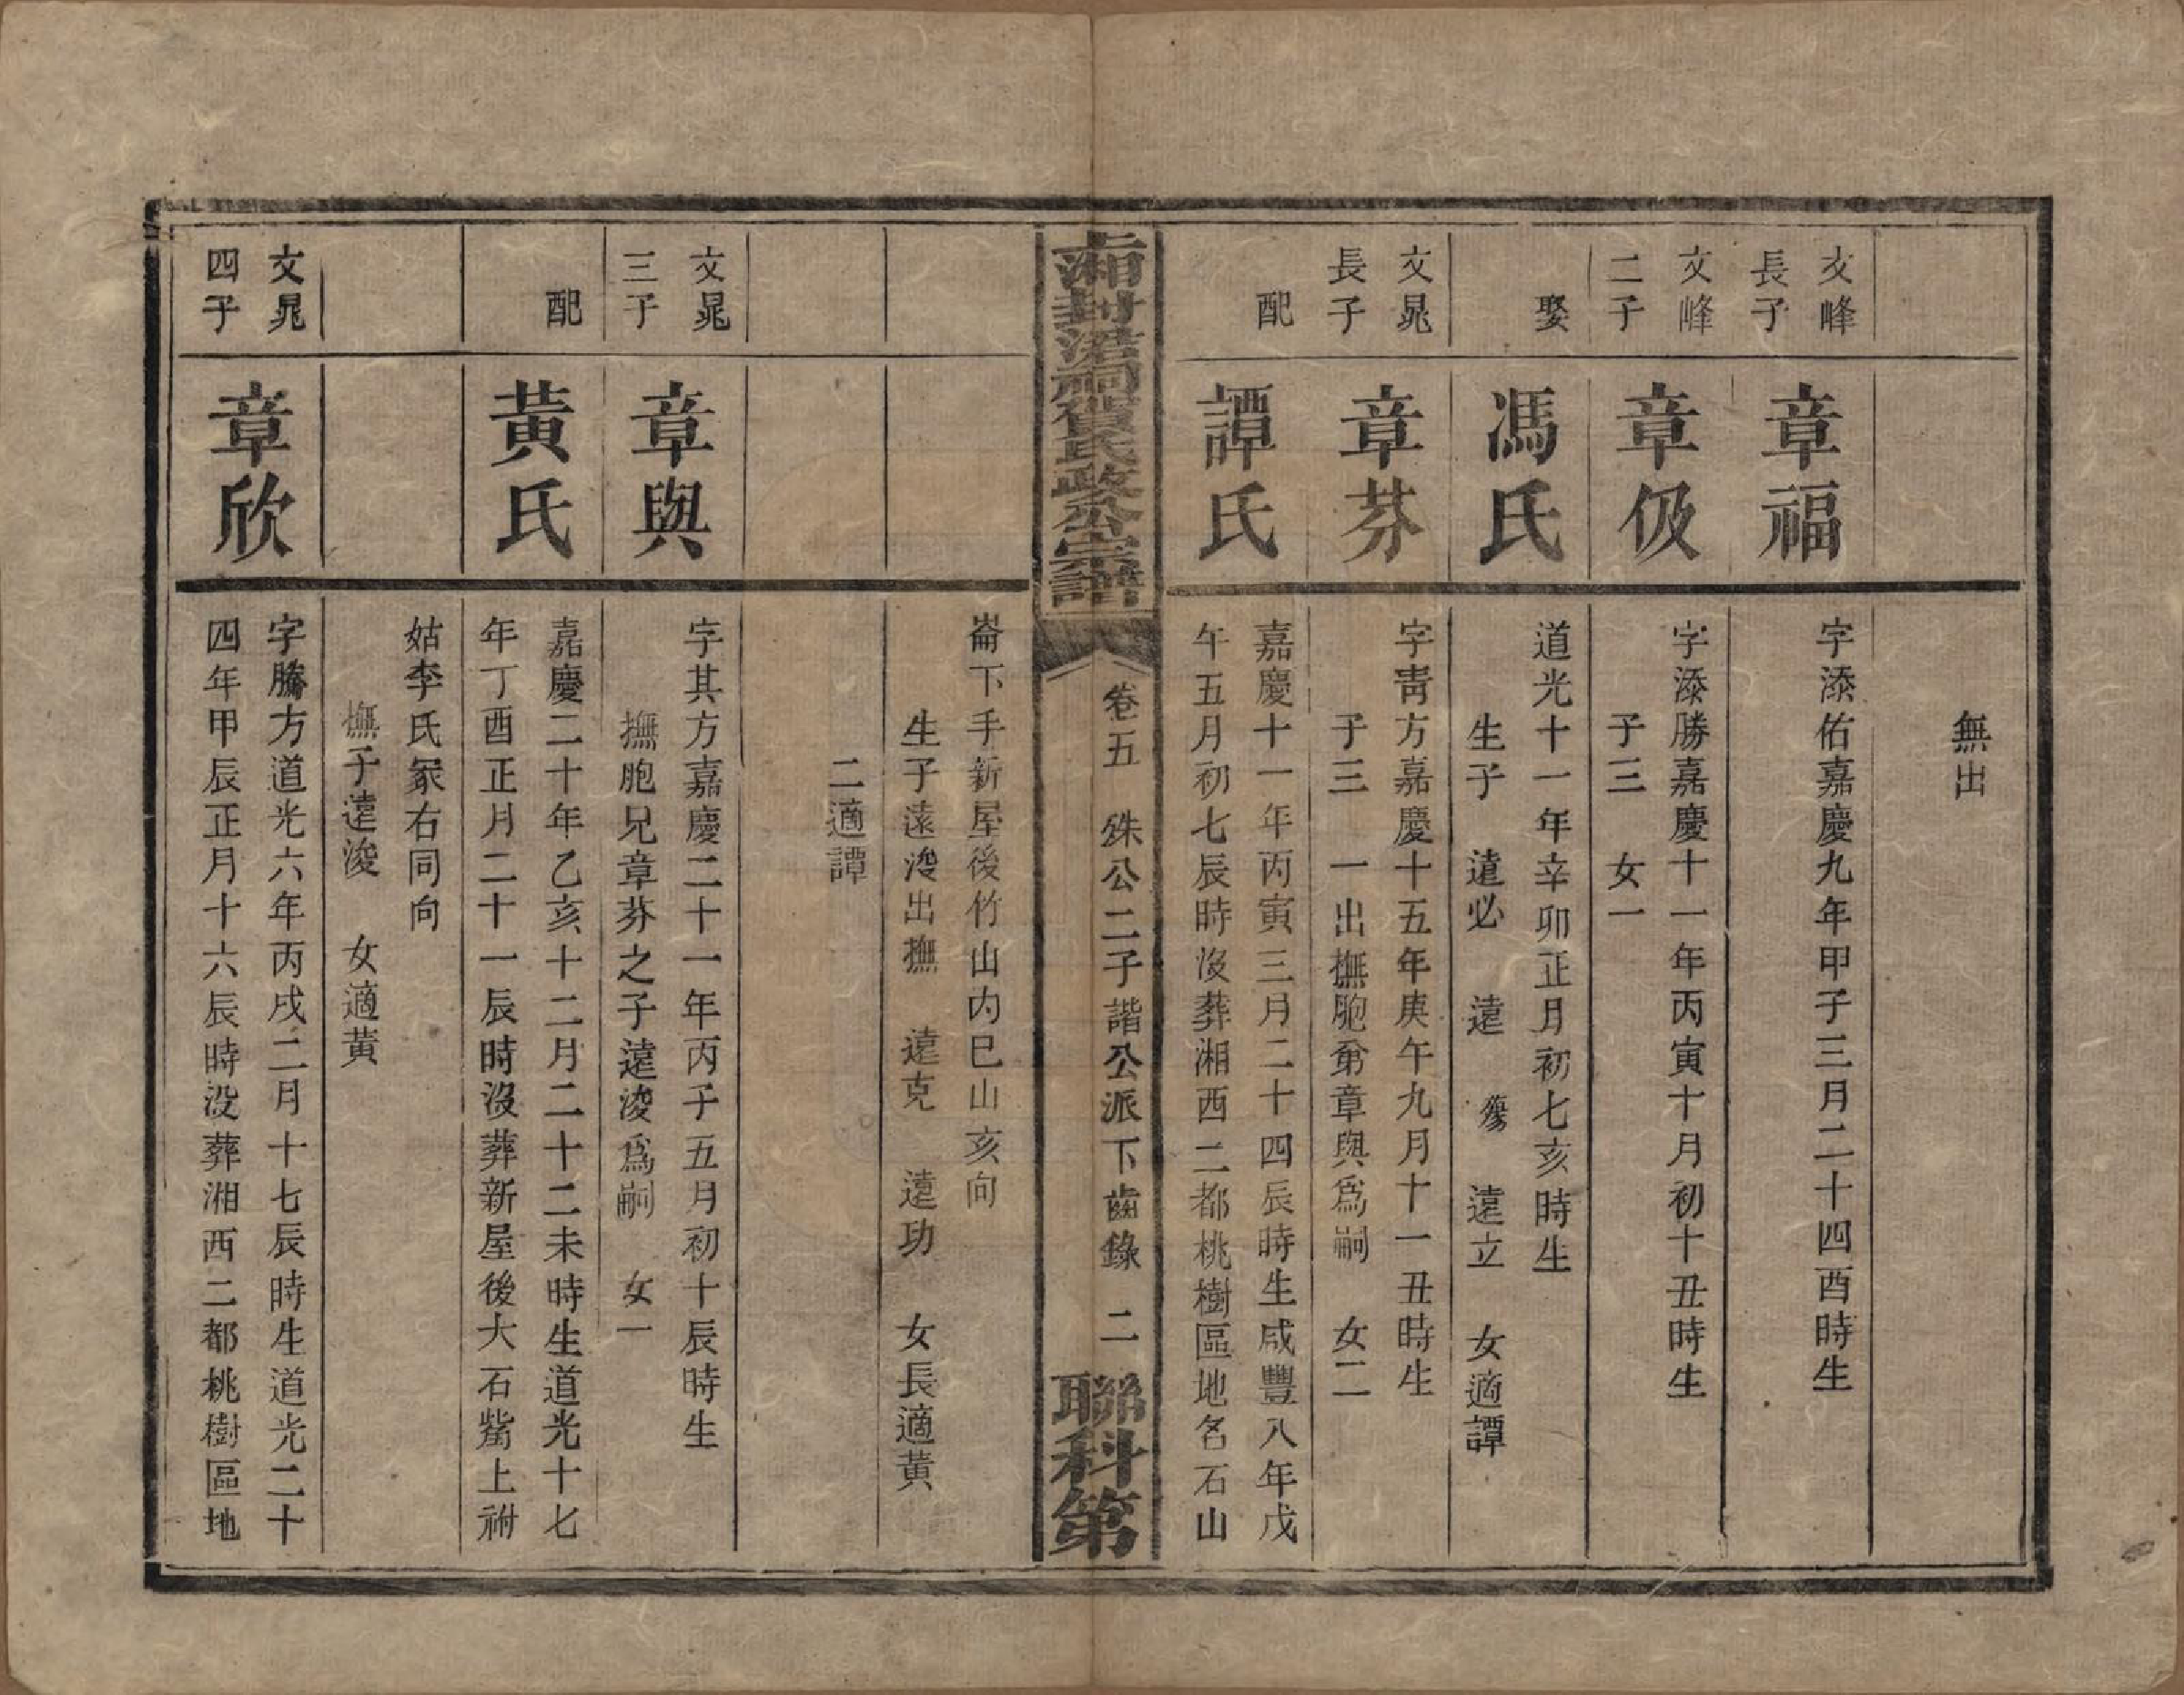 無出
文峰
長子
章福
字添佑嘉慶九年甲子三月二十四酉時生
文峰
二子
章伋
字添勝嘉慶十一年丙寅十月初十丑時生
子三 女一
娶
馮氏
道光十一年辛卯正月初七亥時生
生子 遠必 遠 遠立 女適譚
文晁
長子
章芬
字靑方嘉慶十五年庚午九月十一丑時生
子三 一出撫胞弟章與爲嗣 女二
配
譚氏
嘉慶十一年丙寅三月二十四辰時生咸豐八年戊
午五月初七辰時沒葬湘西二都桃樹區地名石山
湘封浯祠賀氏政公宗譜
卷五 殊公二子諧公派下齒錄 二
聯科第
崙下手新屋後竹山内巳山亥向
生子遠浚出撫 遠克 遠功 女長適黃
二適譚
文晁
三子
章與
字其方嘉慶二十一年丙子五月初十辰時生
撫胞兄章芬之子遠浚爲嗣 女一
配
黃氏
嘉慶二十年乙亥十二月二十二未時生道光十七
年丁酉正月二十一辰時沒葬新屋後大石觜上祔
姑李氏冢右同向
撫子遠浚 女適黃
文晁
四子
章欣
字騰方道光六年丙戌二月十七辰時生道光二十
四年甲辰正月十六辰時没葬湘西二都桃樹區地